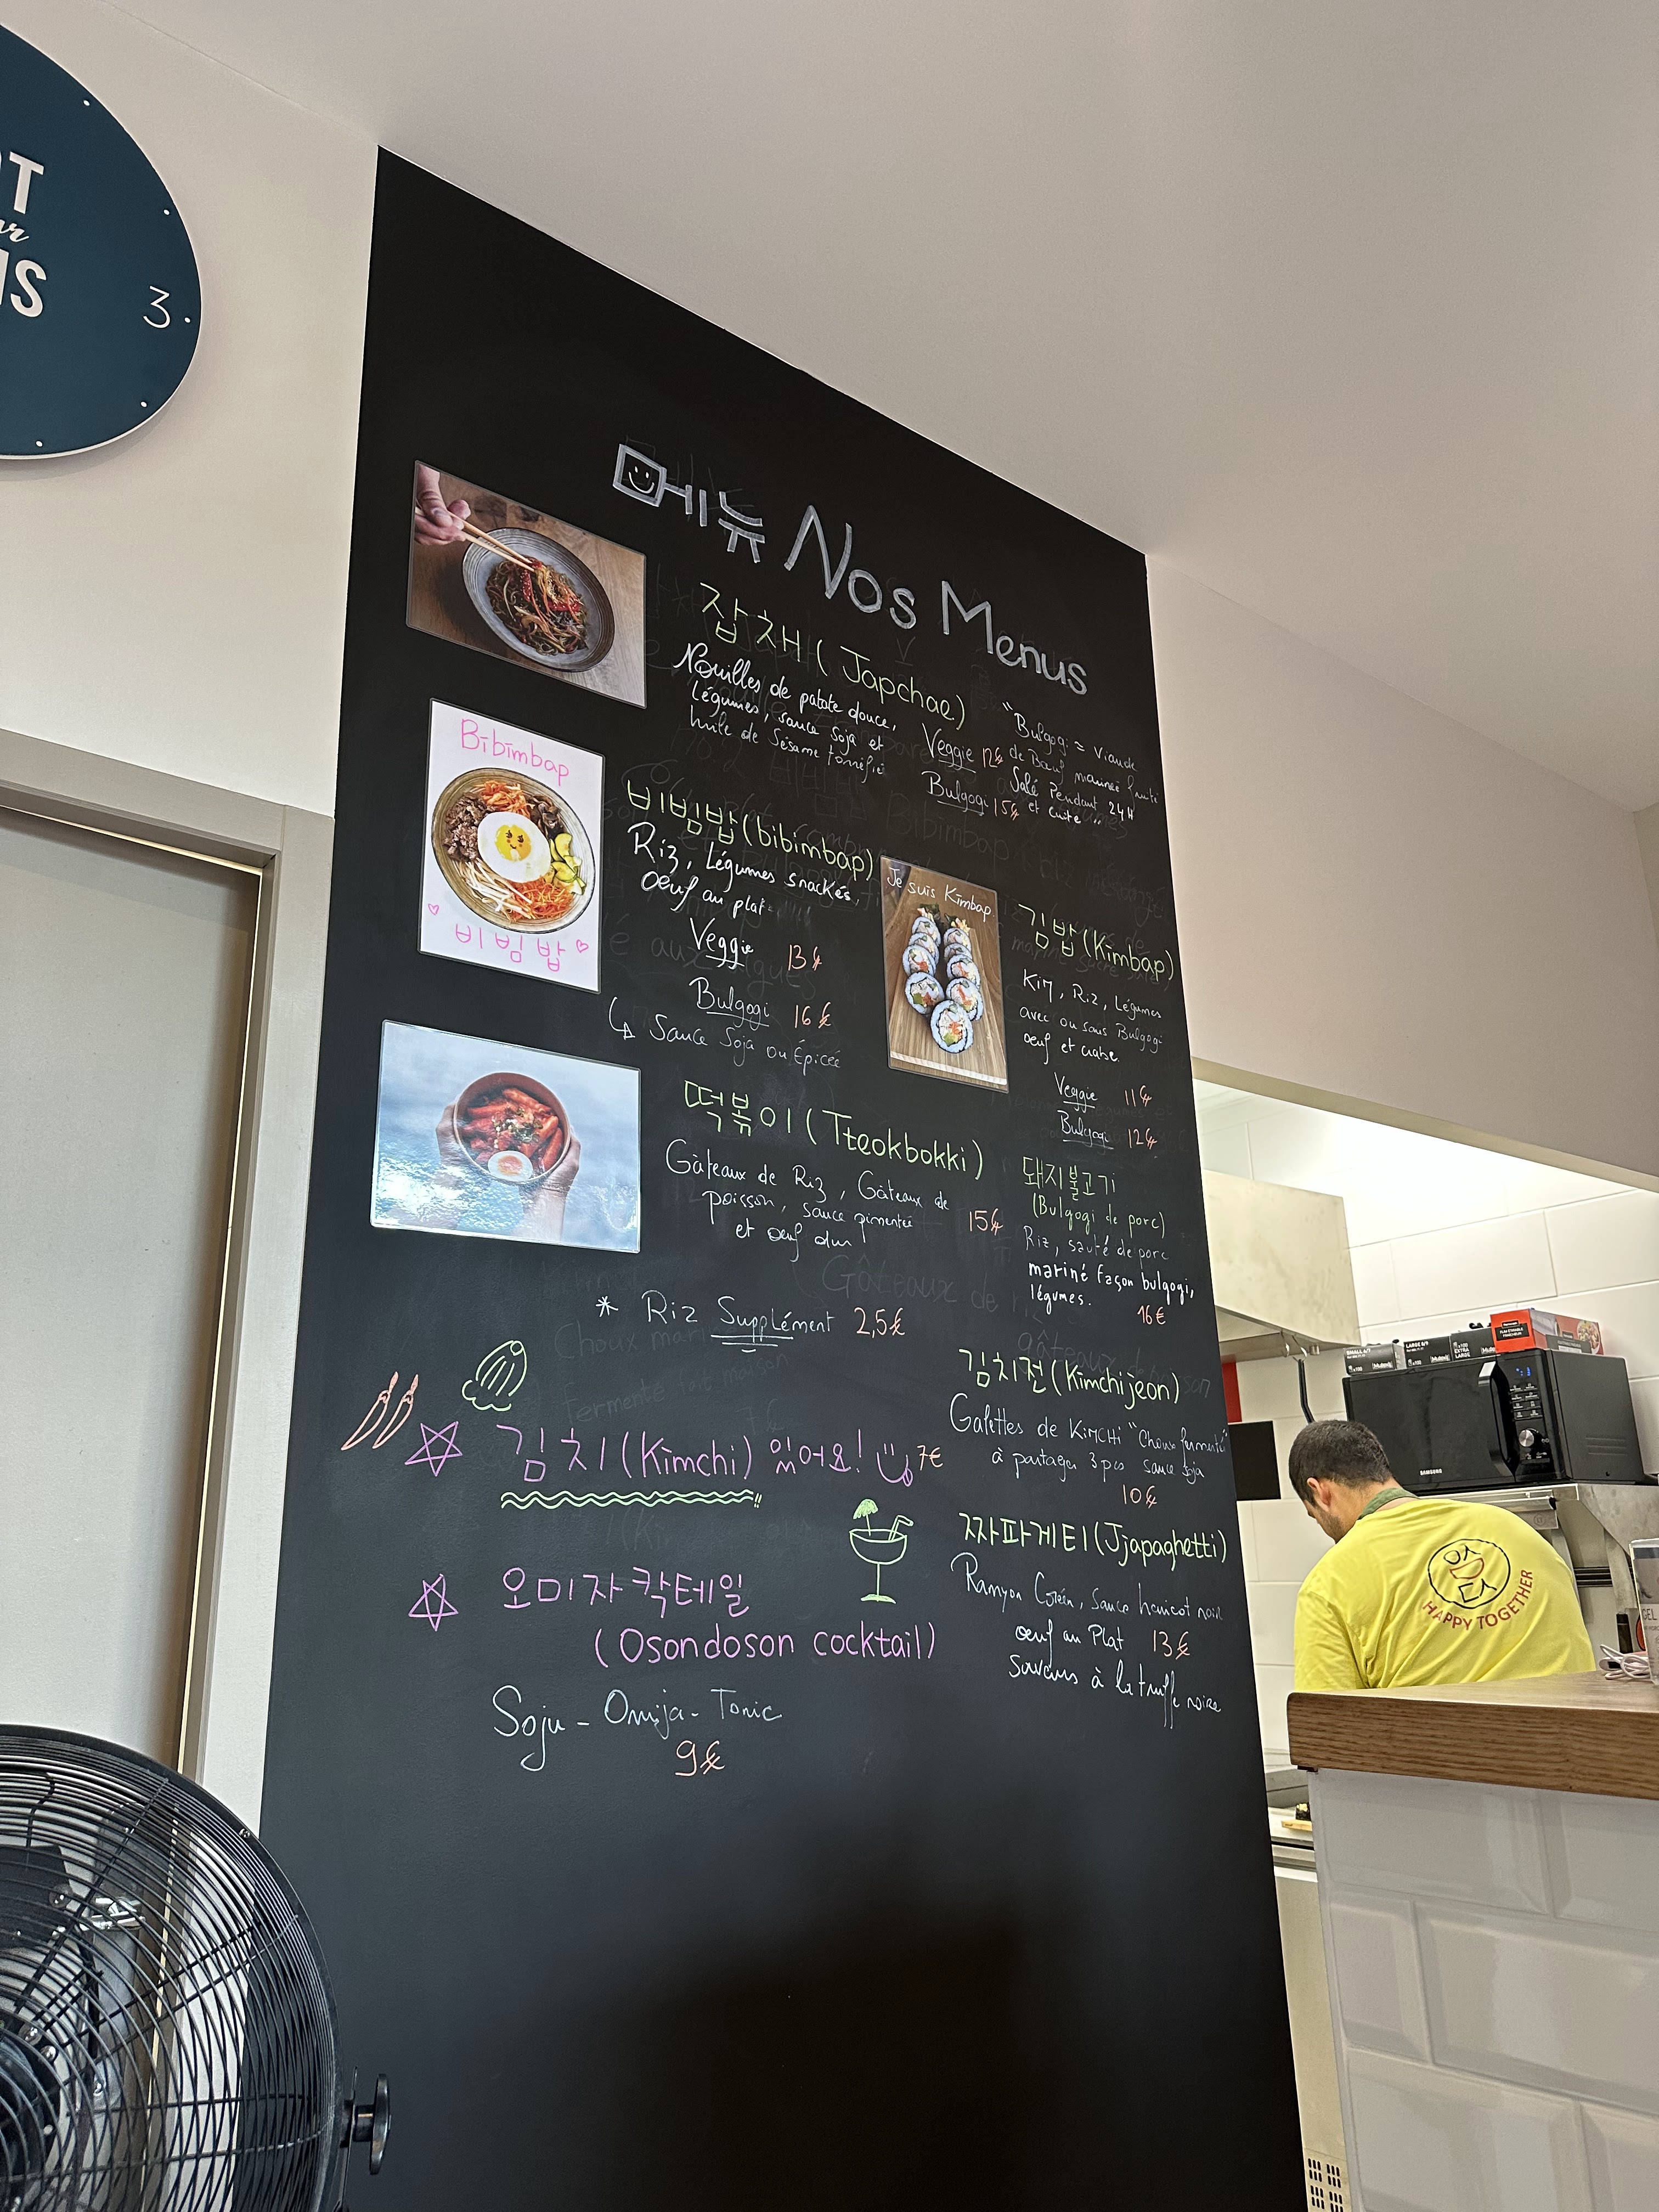 3
메뉴 Nos Menus
잡채 (Japchae)
Nouilles de patate douce,
Légumes, sauce soja et
huile de Sésame torréfié
Veggie 12€
Bulgogi 15€
"Bulgogi = viande
de Bœuf marinée fruité
Salé Pendant 24H
et cuite"
Bibimbap
비빔밥
비빔밥 (bibimbap)
Riz, Légumes snackés,
Oeuf au plat
Veggie 13€
Bulgogi 16€
Sauce Soja ou Épicée
Je suis Kimbap
김밥 (Kimbap)
Kim, Riz, Légumes
avec ou sans Bulgogi
œuf et crabe
Veggie 11€
Bulgogi 12€
떡볶이 (Tteokbokki)
Gâteaux de Riz, Gâteaux de
poisson, sauce pimentée
et œuf dur
15€
돼지불고기
(Bulgogi de porc)
Riz, sauté de porc
mariné façon bulgogi,
légumes.
16€
* Riz Supplément 2,5€
김치 (Kimchi) 있어요! 7€
김치전 (Kimchijeon)
Galettes de Kimchi "Choux fermenté"
à partager 3 pcs sauce soja
10€
오미자 칵테일
(Osondoson cocktail)
Soju - Omija - Tonic
9€
짜파게티 (Jjapaghetti)
Ramyon Coréen, Sauce haricot noir
œuf au Plat 13€
Saveurs à la truffe noire
SAMSUNG
HAPPY TOGETHER